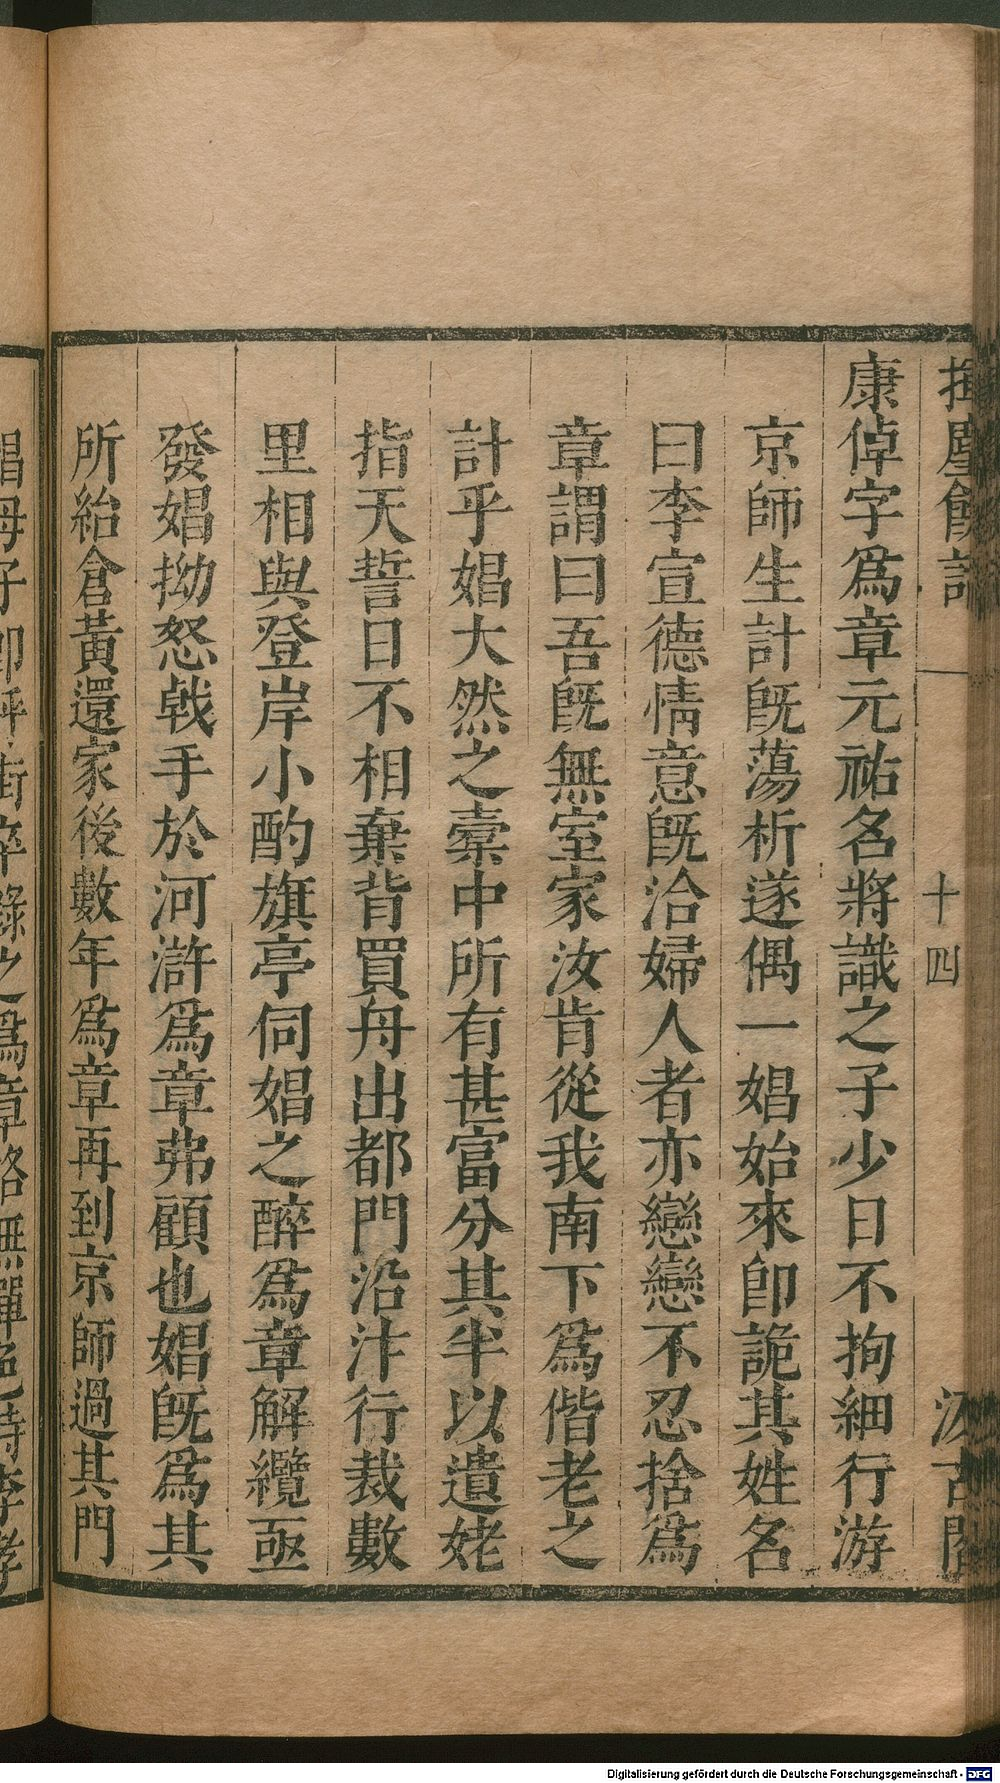 揮麈餘話
十四
汲古閣
康倬字爲章元祐名將識之子少日不拘細行游
京師生計旣蕩析遂偶一娼始來卽詭其姓名
曰李宣德情意旣洽婦人者亦戀戀不忍捨爲
章謂曰吾旣無室家汝肯從我南下爲偕老之
計乎娼大然之槖中所有甚富分其半以遺姥
指天誓日不相棄背買舟出都門沿汴行裁數
里相與登岸小酌旗亭伺娼之醉爲章解纜亟
發娼拗怒戟手於河滸爲章弗顧也娼旣爲其
所紿倉黃還家後數年爲章再到京師過其門
娼母子卽呼街卒錄之爲章略無憚色時李孝
Digitalisierung gefördert durch die Deutsche Forschungsgemeinschaft - DFG